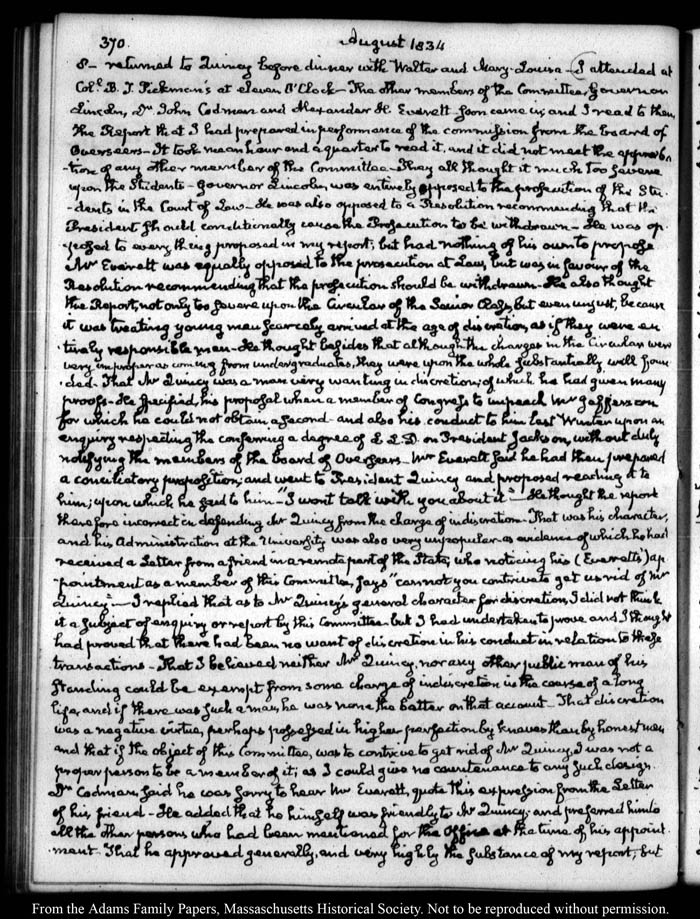 370.
August 1834
8— returned to Quincy before dinner with Walter and Mary-Louisa—I attended at
Colł B. T. Pickman's at eleven O'Clock—The other members of the Committee, Governor
Lincoln, Dr John Codman and Alexander H. Everett soon came in; and I read to them
the Report that I had prepared in performance of the commission from the board of
Overseers—It took me an hour and a quarter to read it, and it did not meet the approba-
-tion of any other member of the Committee—They all thought it much too severe
upon the Students—Governor Lincoln, was entirely opposed to the prosecution of the Stu-
-dents in the Court of Law—He was also opposed to a Resolution recommending that the
President should conditionally cause the Prosecution to be withdrawn—He was op-
-posed to every thing proposed in my report, but had nothing of his own to propose
Mr Everett was equally opposed to the prosecution at Law, but was in favour of the
Resolution recommending that the prosecution should be withdrawn—He also thought
the Report, not only too severe upon the Circular of the Senior Class, but even unjust, because
it was treating young men scarcely arrived at the age of discretion, as if they were en-
-tirely responsible men—He thought besides that although the charges in the Circular were
very improper as coming from undergraduates, they were upon the whole substantially well foun-
-ded. That Mr Quincy was a man very wanting in discretion; of which he had given many
proofs—He specified, his proposal when a member of Congress to impeach Mr Jefferson
for which he could not obtain a second—and also his conduct to him last Winter upon an
enquiry respecting the conferring a degree of L.L.D. on President Jackson, without duly
notifying the members of the board of Overseers—Mr Everett said he had then prepared
a conciliatory proposition; and went to President Quincy and proposed reading it to
him; upon which he said to him—"I wont talk with you about it"—He thought the report
therefore incorrect in defending Mr Quincy from the charge of indiscretion—That was his character,
and his Administration at the University was also very unpopular—as evidence of which he had
received a Letter from a friend in a remote part of the State, who noticing his (Everett's) ap-
-pointment as a member of this Committee, says "cannot you contrive to get us rid of Mr
Quincy"—I replied that as to Mr Quincy's general character for discretion, I did not think
it a subject of enquiry or report by this Committee—but I had undertaken to prove and I thought
had proved that there had been no want of discretion in his conduct in relation to these
transactions—That I believed neither Mr Quincy, nor any other public man of his
standing could be exempt from some charge of indiscretion in the course of a long
life, and if there was such a man, he was none the better on that account—That discretion
was a negative virtue, perhaps possessed in higher perfection by knaves than by honest men
and that if the object of this Committee, was to contrive to get rid of Mr Quincy, I was not a
proper person to be a member of it; as I could give no countenance to any such design.
Dr Codman, said he was sorry to hear Mr Everett, quote this expression from the Letter
of his friend—He added that he himself was friendly to Mr Quincy; and preferred him to
all the other persons who had been mentioned for the Office at the time of his appoint-
-ment. That he approved generally, and very highly the substance of my report, but
From the Adams Family Papers, Massachusetts Historical Society. Not to be reproduced without permission.